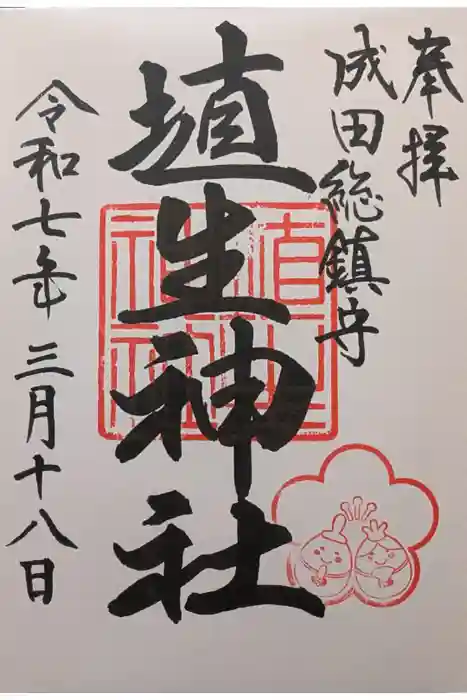 奉拝
成田総鎮守
埴生神社
令和七年三月十八日
埴生神社